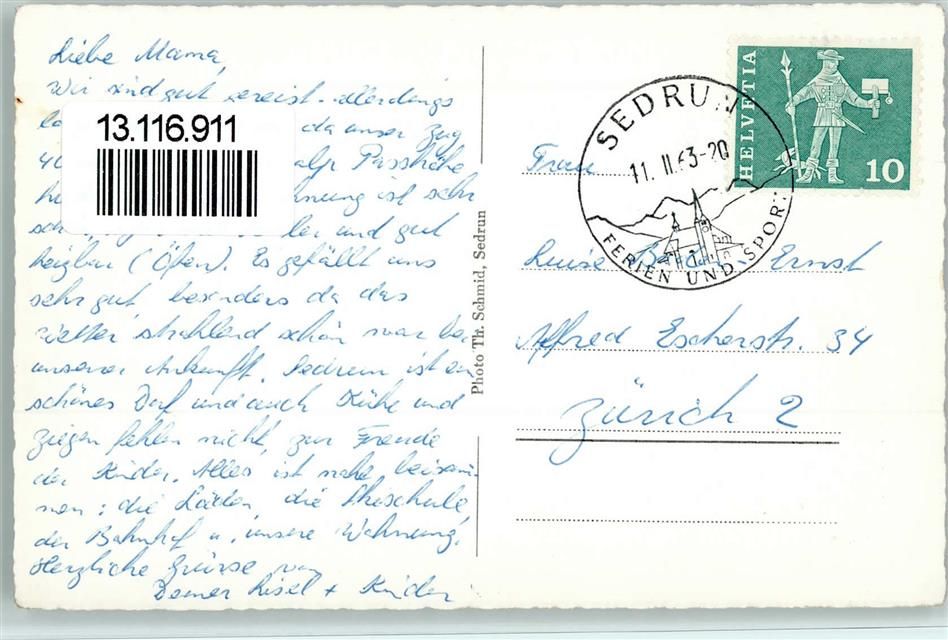 Liebe Mama,
Wir sind gut gereist. Allerdings
da unser Zug
40 alp Passhöhe
hnung ist sehr
ler und gut
heizbar (Öfen). Es gefällt uns
sehr gut, besonders da das
Wetter strahlend schön war bei
unserer Ankunft. Sedrun ist ein
schönes Dorf und auch Kühe und
Ziegen fehlen nicht, zur Freude
der Kinder. Alles ist nahe beisam-
men: die Läden, die Skischule,
der Bahnhof u. unsere Wohnung.
Herzliche Grüsse von
Deiner Lisel + Kinder
13.116.911
Photo Th. Schmid, Sedrun
SEDRUN
11. II. 63-20
FERIEN UND SPORT
HELVETIA
10
Frau
Luise Ernst
Alfred Escherstr. 34
Zürich 2